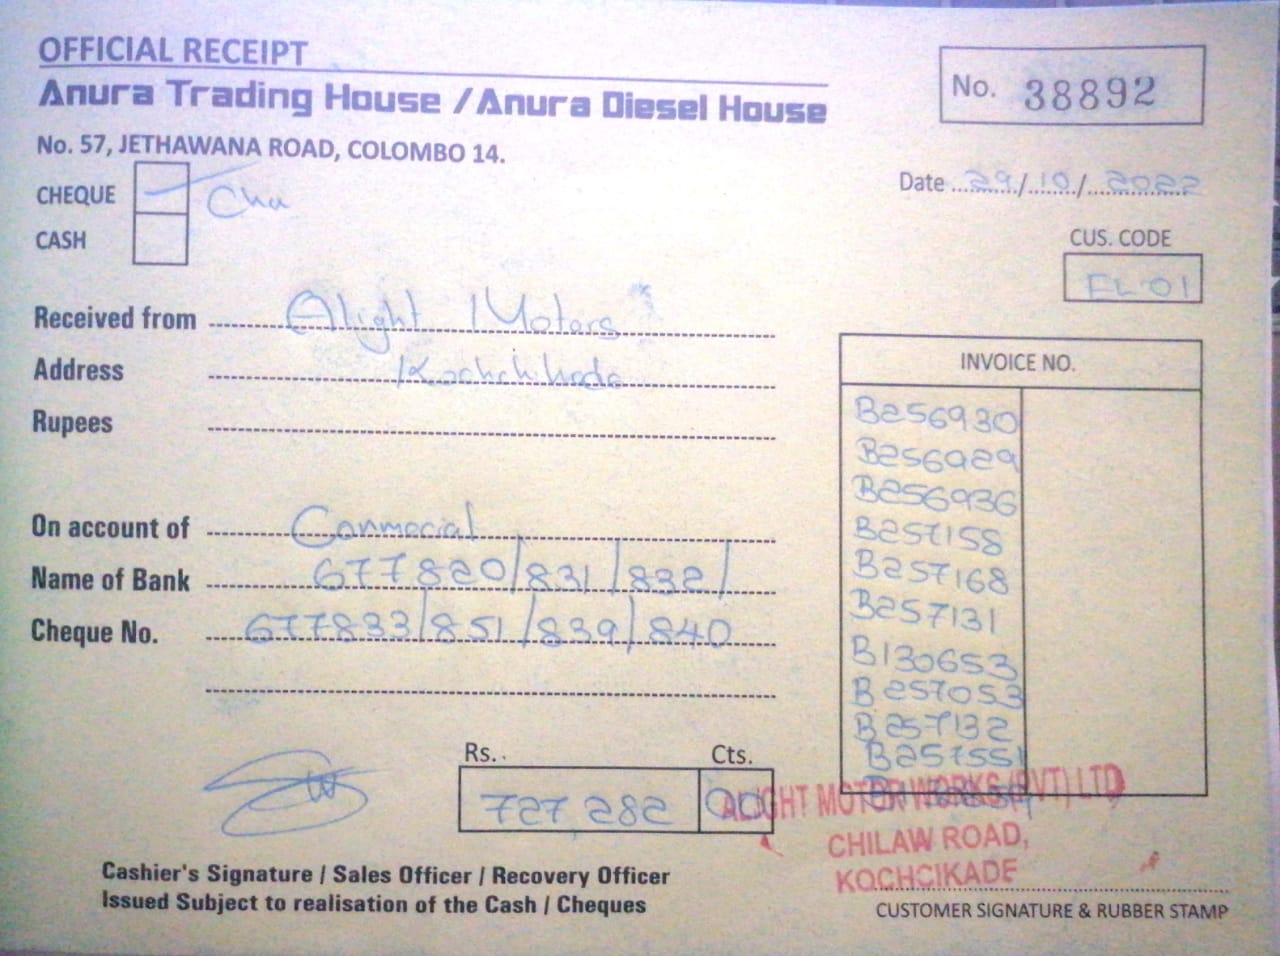 OFFICIAL RECEIPT
Anura Trading House / Anura Diesel House
No. 57, JETHAWANA ROAD, COLOMBO 14.
No. 38892
CHEQUE
CASH
Date 29/10/2022
CUS. CODE
EL 01
Received from Alight Motors
Address
Rupees
On account of
Name of Bank 677820/831/832/
Cheque No. 677833/851/839/840
INVOICE NO.
B256930
B256929
B256936
B257158
B257168
B257131
B130653
B257053
B257132
B257551
Rs. Cts.
727 282 00
ALIGHT MOTOR WORKS (PVT) LTD
CHILAW ROAD,
KOCHCIKADE
Cashier's Signature / Sales Officer / Recovery Officer
Issued Subject to realisation of the Cash / Cheques
CUSTOMER SIGNATURE & RUBBER STAMP